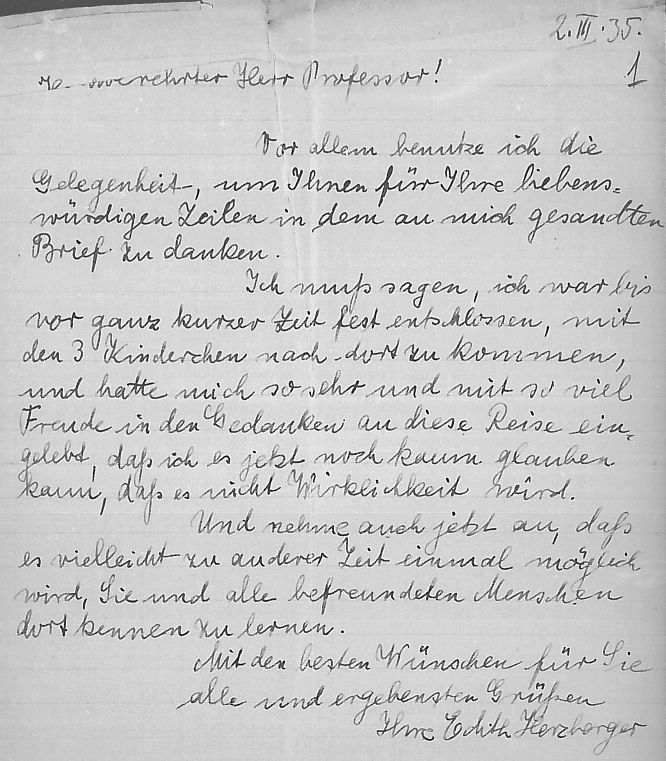 2.III.35.
1
verehrter Herr Professor!
Vor allem benutze ich die
Gelegenheit, um Ihnen für Ihre liebens=
würdigen Zeilen in dem an mich gesandten
Brief zu danken.
Ich muß sagen, ich war bis
vor ganz kurzer Zeit fest entschlossen, mit
den 3 Kinderchen nach dort zu kommen,
und hatte mich so sehr und mit so viel
Freude in den Gedanken an diese Reise ein=
gelebt, daß ich es jetzt noch kaum glauben
kann, daß es nicht Wirklichkeit wird.
Und nehme auch jetzt an, daß
es vielleicht zu anderer Zeit einmal möglich
wird, Sie und alle befreundeten Menschen
dort kennen zu lernen.
Mit den besten Wünschen für Sie
alle und ergebensten Grüßen
Ihre Edith Herzberger